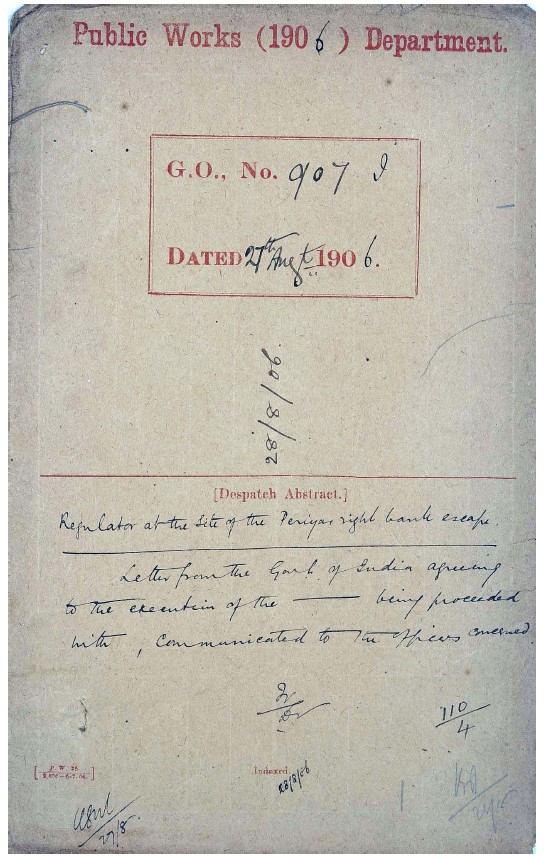 Public Works (1906) Department.
G.O., No. 907 I
DATED 27th Augt. 1906.
28/8/06.
[Despatch Abstract.]
Regulator at the Site of the Periyar right bank escape.
Letter from the Govt. of India agreeing
to the execution of the —— being proceeded
with, communicated to the officers concerned.
110/4
Indexed.
28/8/06
27/8